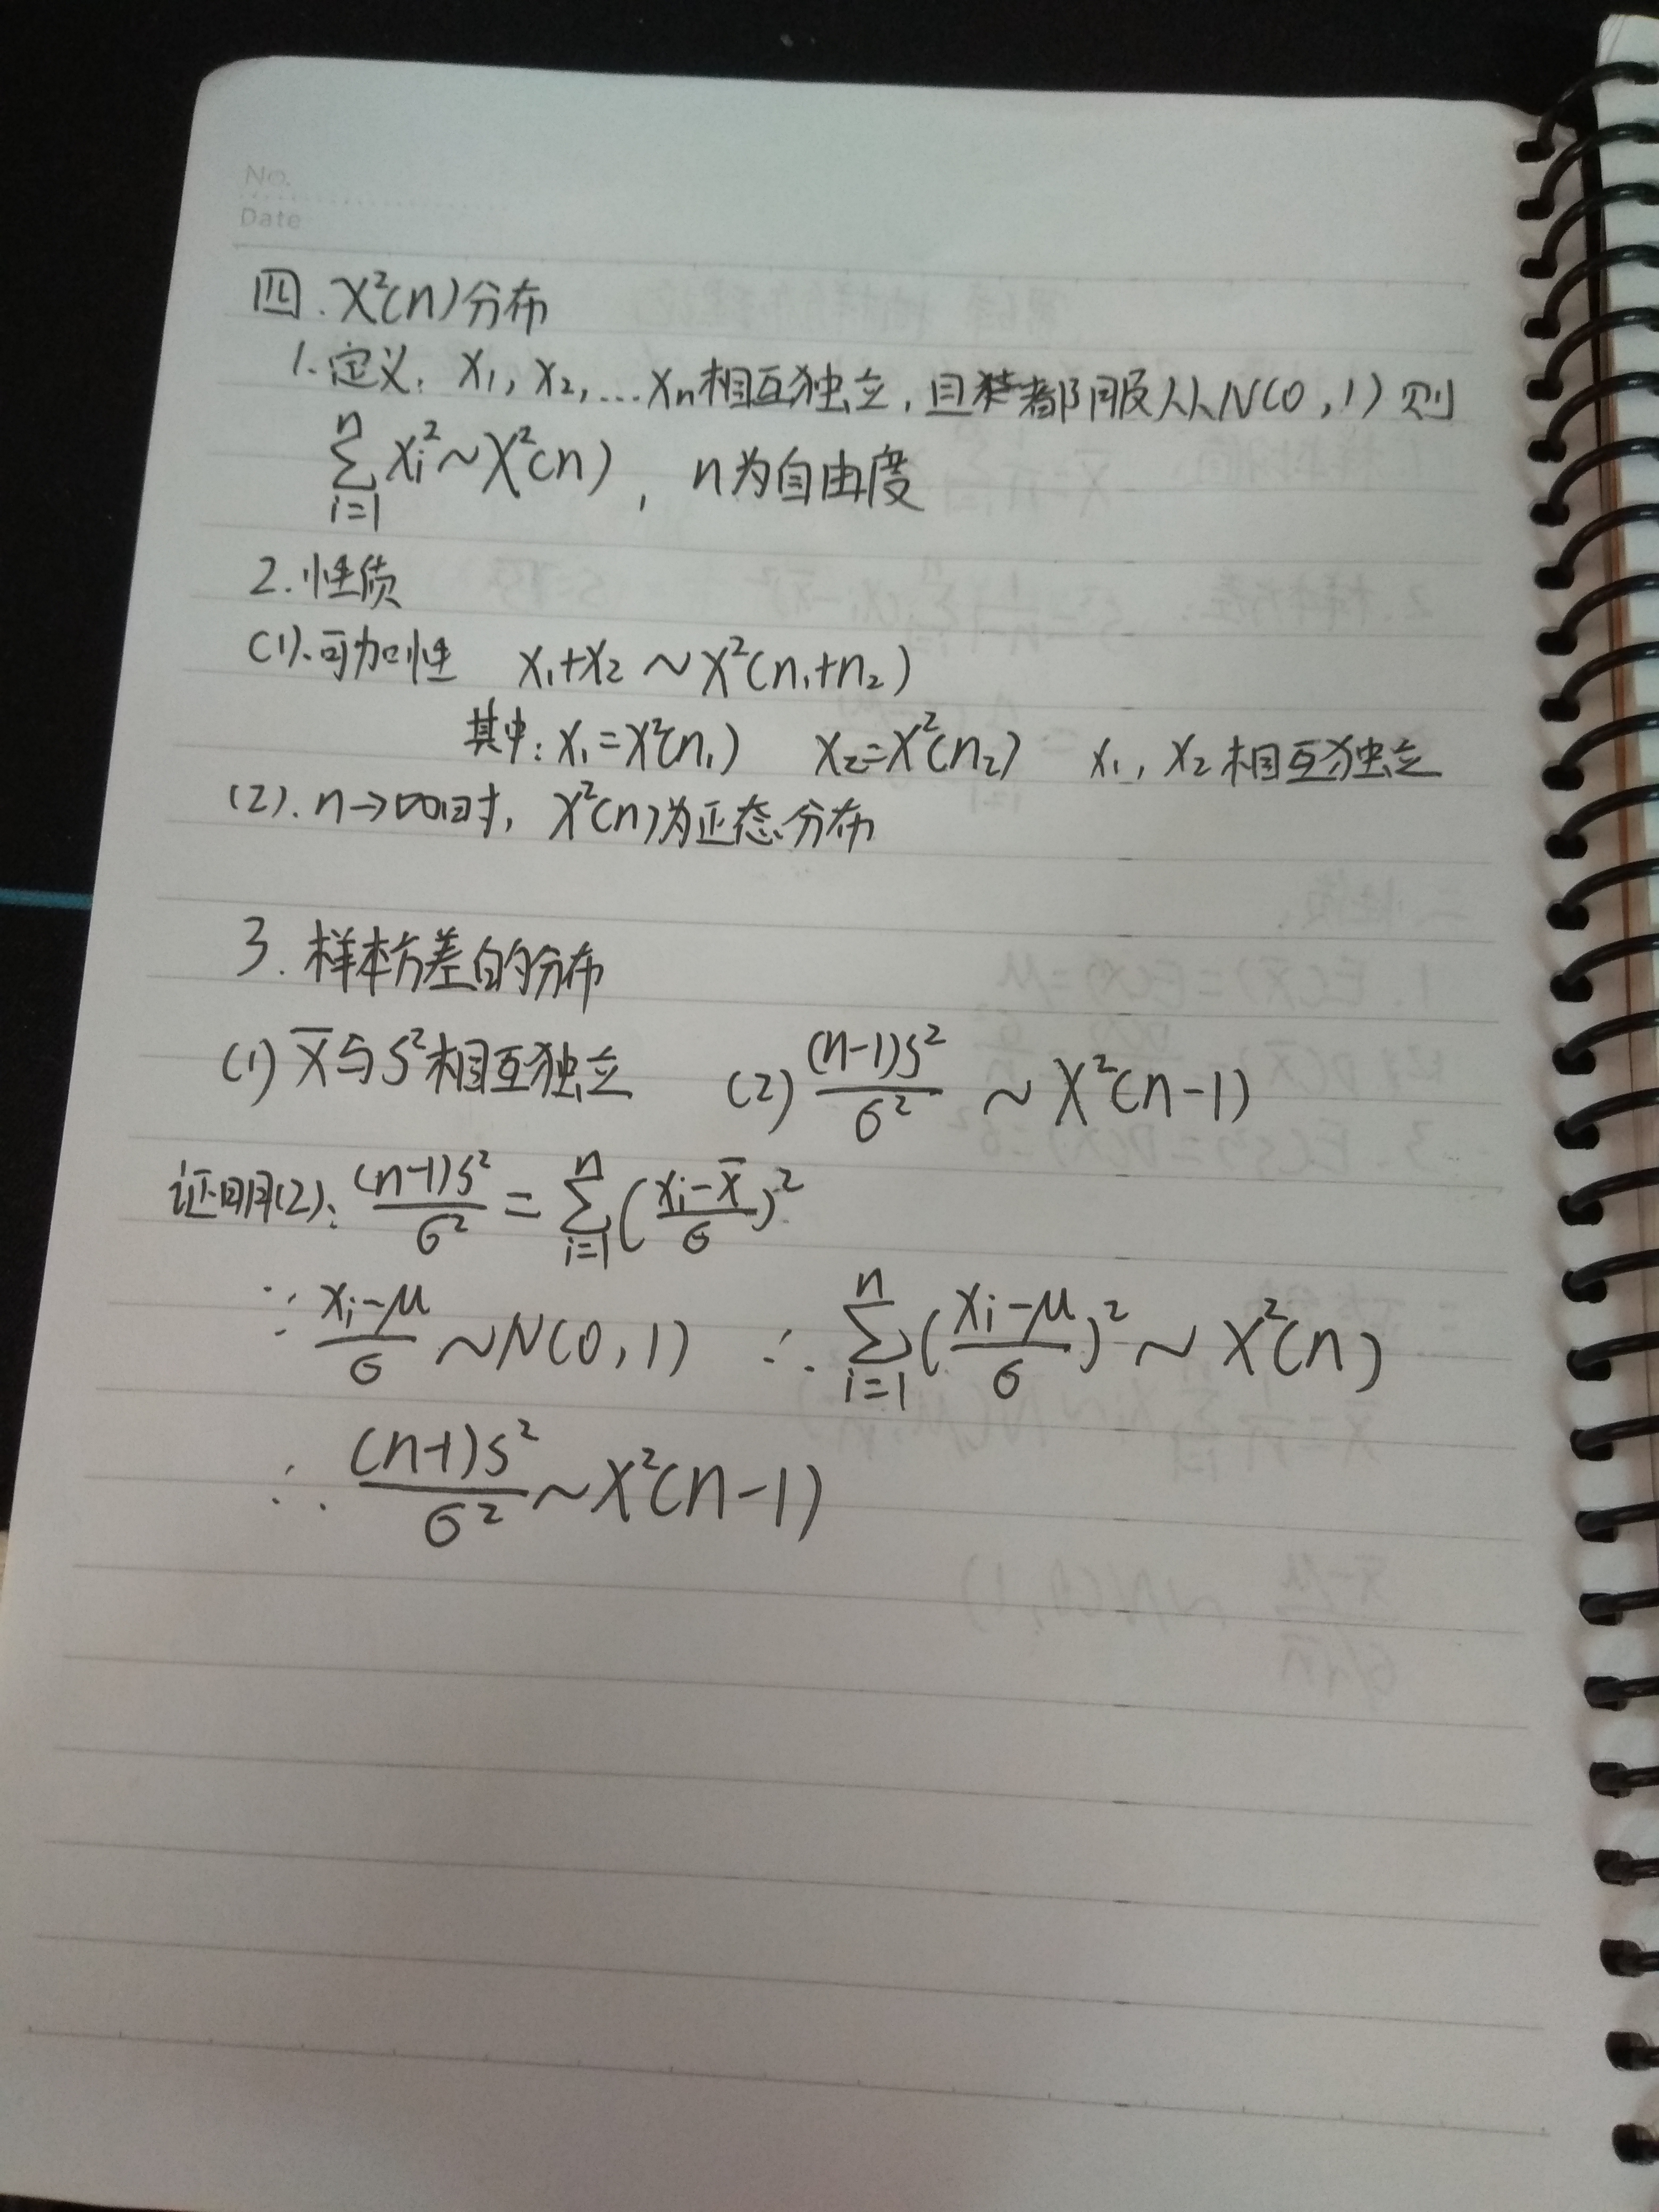 No.
Date
四. χ²(n)分布
1.定义: X₁, X₂,...Xn相互独立, 且都服从N(0,1) 则
∑_{i=1}^{n} Xi² ~ χ²(n), n为自由度
2.性质
(1).可加性 X₁+X₂ ~ χ²(n₁+n₂)
其中: X₁=χ²(n₁) X₂=χ²(n₂) X₁, X₂相互独立
(2). n→∞时, χ²(n)为正态分布
3. 样本方差的分布
(1) X̄与S²相互独立 (2) (n-1)S²/σ² ~ χ²(n-1)
证明(2): (n-1)S²/σ² = ∑_{i=1}^{n} ((Xi-X̄)/σ)²
∵ (Xi-μ)/σ ~ N(0,1) ∴ ∑_{i=1}^{n} ((Xi-μ)/σ)² ~ χ²(n)
∴ (n-1)S²/σ² ~ χ²(n-1)